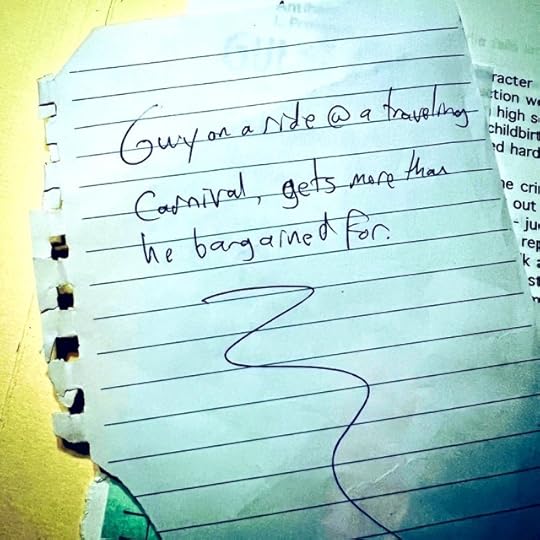 Guy on a ride @ a traveling
Carnival, gets more than
he bargained for.
racter
ction we
high s
childbirt
ed hard
e cri
out
- ju
rep
k a
st